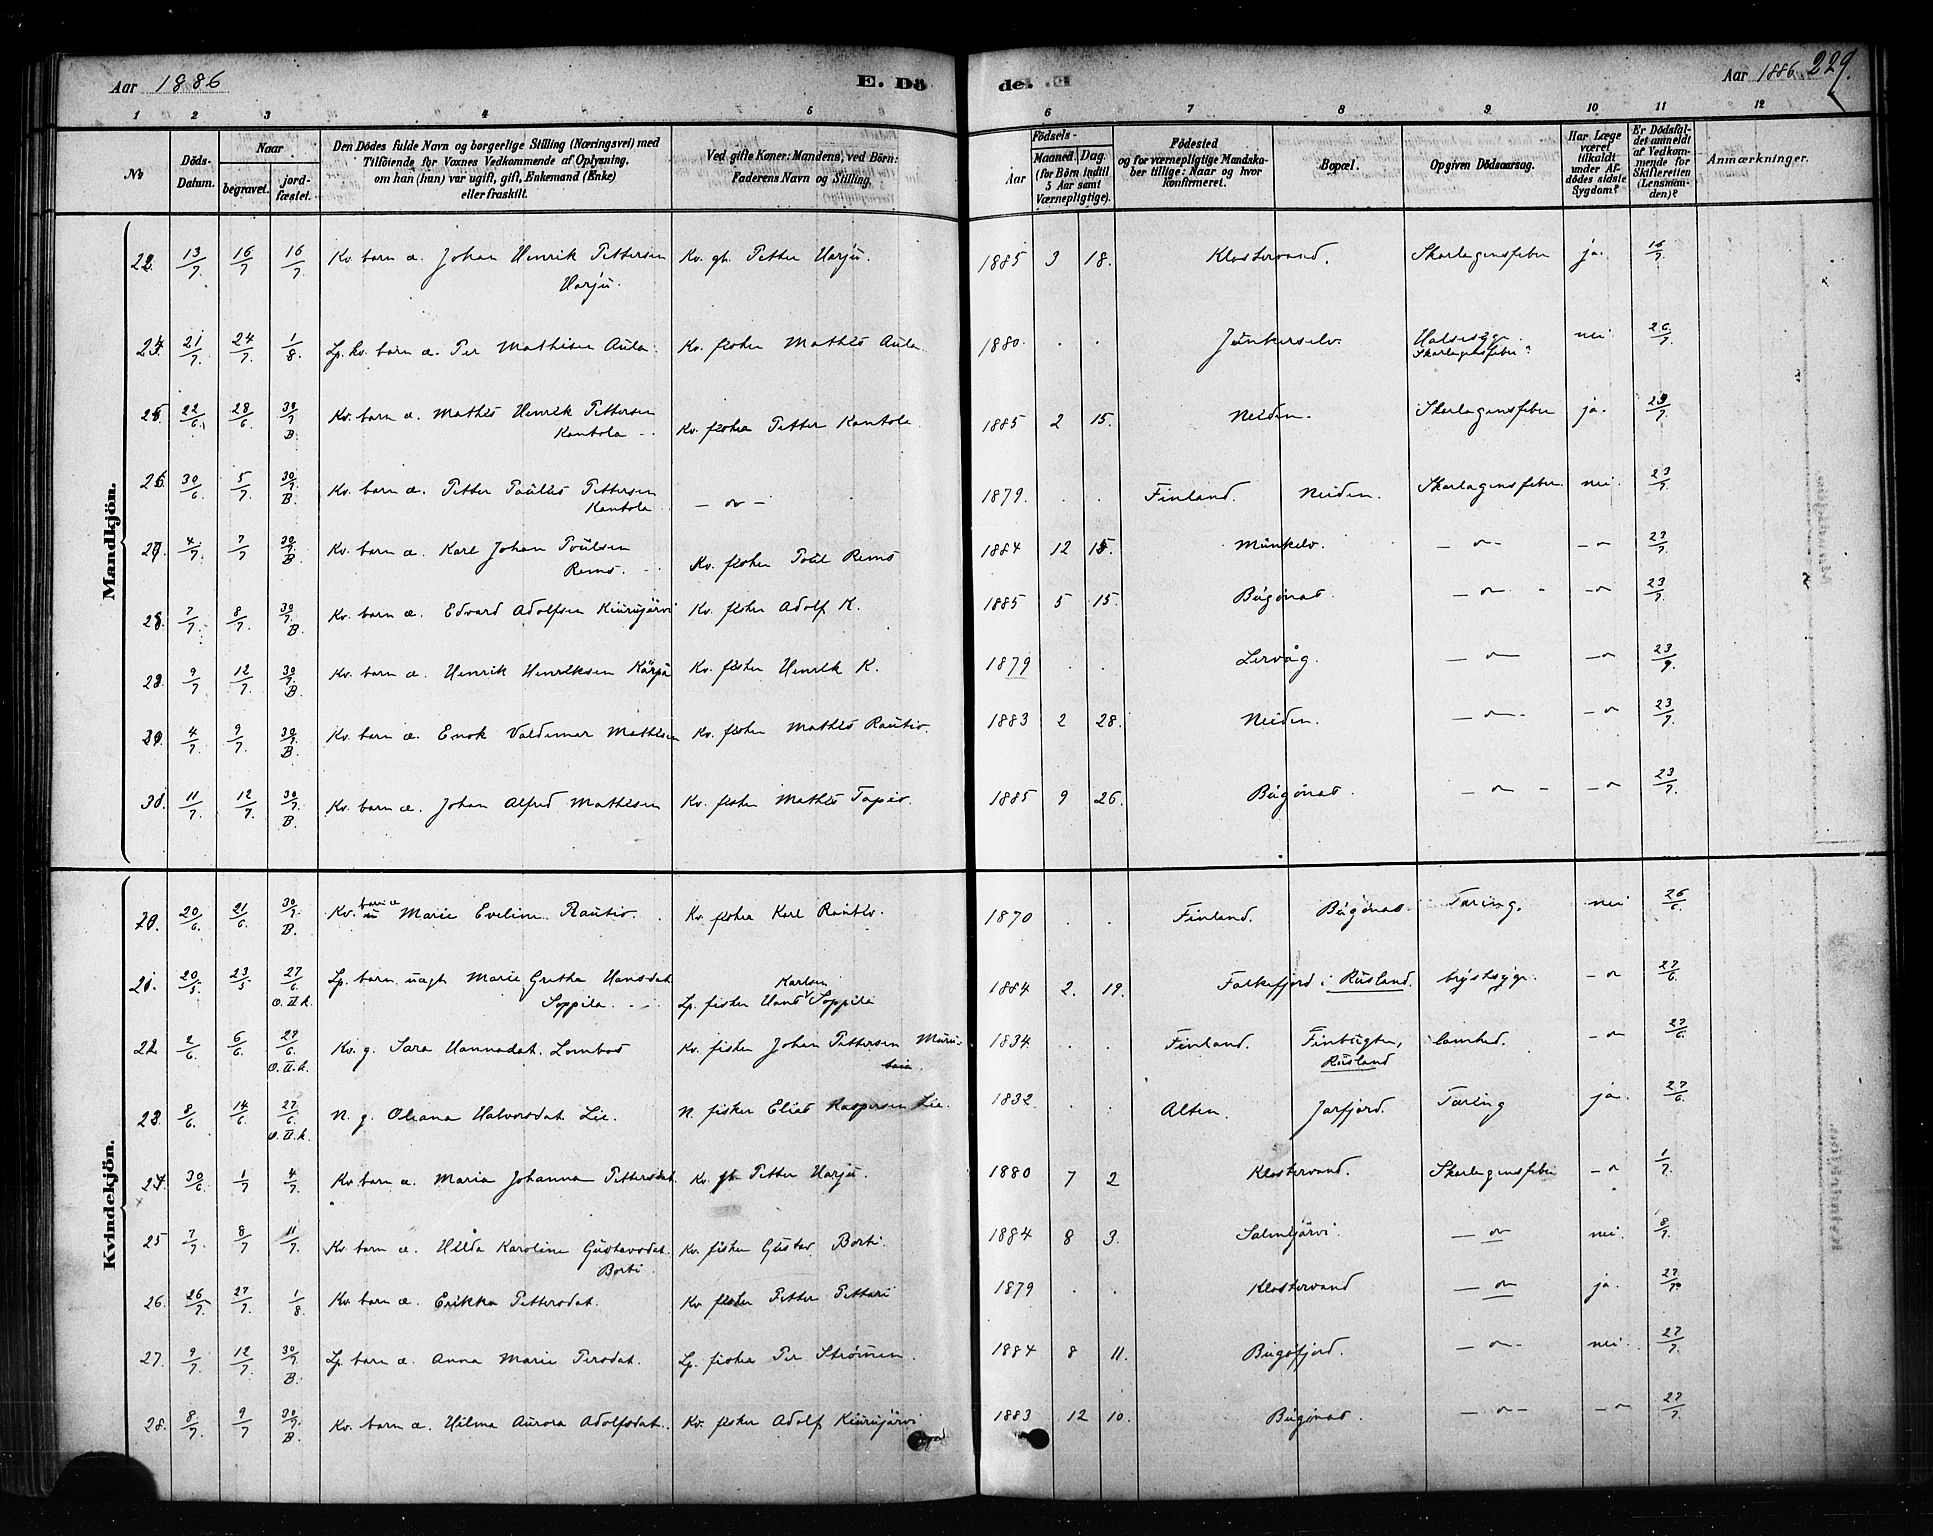 Aar 1886 E. Dö de. Aar 1886. 229.
1 2 3 4 5 6 7 8 9 10 11 12
No Döds-Datum. Naar begravet. jord-fæstet. Den Dödes fulde Navn og borgerlige Stilling (Næringsvei) med Tilföiende for Voxnes Vedkommende af Oplysning, om han (hun) var ugift, gift, Enkemand (Enke) eller fraskilt. Ved gifte Koner: Mandens, ved Börn: Faderens Navn og Stilling. Födsels- Aar Maaned. Dag. (for Börn indtil 5 Aar samt Værnepligtige). Födested og for værnepligtige Mandskaber tillige: Naar og hvor konfirmeret. Bopæl. Opgiven Dödsaarsag. Har Læge været tilkaldt under Afdödes sidste Sygdom? Er Dödsfaldet anmeldt af Vedkommende for Skifteretten (Lensmanden)? Anmærkninger.
Mandkjön.
13/7 16/7 16/7 Kv. barn æ. Johan Henrik Pettersen Harju. Kv. gb. Petter Harju. 1885 3 18. Klostervand. Skarlagensfeber ja. 16/7
24. 21/7 24/7 1/8 Lp. kv. barn æ. Per Mathisen Aula. Kv. fisker Mathis Aula 1880. . . Junkerselv. Halssyge. Skarlagensfeber? nei. 26/7
25. 22/6 28/6 30/7 B Kv. barn æ. Mathis Henrik Pettersen Kantola Kv. fisker Petter Kantola. 1885 2 15. Neiden. Skarlagensfeber ja. 23/7
26. 30/6 5/7 30/7 B Kv. barn æ. Petter Paulus Pettersen Kantola - o - 1879. . . Finland. Neiden. Skarlagensfeber. nei. 23/7
27. 4/7 7/7 30/7 B Kv. barn æ. Karl Johan Poulsen Rems. Kv. fisker Poul Rems 1884 12 15. Munkelv. - o - - o 23/7
28. 7/7 8/7 30/7 B. Kv. barn æ. Edvard Adolfsen Kiurujärvi Kv. fisker Adolf K. 1885 5 15. Bugønæs - o - - o 23/7
9/7 12/7 30/7 B. Kv. barn æ. Henrik Henriksen Kärpä Kv. fisker Henrik K. 1879 . . Lervåg. - o - - o 23/7
4/7 9/7 30/7 B. Kv. barn æ. Enok Valdemar Mathisen Kv. fisker Mathis Rautio. 1883 2 28. Neiden. - o - - o 23/7
11/7 12/7 30/7 B Kv. barn æ. Johan Alfred Mathisen Kv. fisker Mathis Tapio. 1885 9 26. Bugønæs. - o - - o 23/7
Kvindekjön.
20. 20/6 21/6 30/7 B. Kv. barn æ Marie Eveline Rautio. Kv. fisker Karl Rautio. 1870 . . Finland. Bugønæs. Tæring. nei 26/6
21. 20/5 23/5 27/6 O. II. k. Lp. barn uægt Marie Gretha Hansdat. Soppila. Lp. fisker Hans Karlsen Soppila 1884 2. 19. Falkefjord i Rusland. brystsyge. - o 27/6
22 2/6 6/6 27/6 O. II. k. Kv. g. Sara Hannadat. Kv. fisker Johan Pettersen 1834. . . Finland. Finbugten, Rusland lamhed. - o 27/6
23. 8/6 14/6 27/6 O. II. k. N. g. Oliana Halvorsdat. Lie. N. fisker Elias Kaspersen Lie. 1832 . . Alten. Jarfjord. Tæring ja. 27/6
24. 30/6 1/7 4/7 Kv. barn æ. Maria Johanna Pettersdat. Kv. gb. Petter Harju. 1880 7 2 Klostervand. Skarlagensfeber - o 1/7
25 7/7 8/7 11/7 Kv. barn æ. Hilda Karoline Gustavsdat. Borti. Kv. fisker Gustav Borti. 1884 8 3. Salmijärvi. - o nei. 8/7
26. 26/7 27/7 1/8 Kv. barn æ. Erikka Pettersdat. Kv. fisker Petter Pettari 1879 . . Klostervand - o - ja. 27/7
27. 9/7 12/7 30/7 B. Lp. barn æ. Anna Marie Persdat. Lp. fisker Per Strømen. 1884 8 11. Bugøfjord. - o - nei. 27/7
28. 8/7 9/7 30/7 B Kv. barn æ. Hilma Aurora Adolfsdat. Kv. fisker Adolf Kiurujärvi 1883 12 10. Bugønæs. - o - - o 27/7